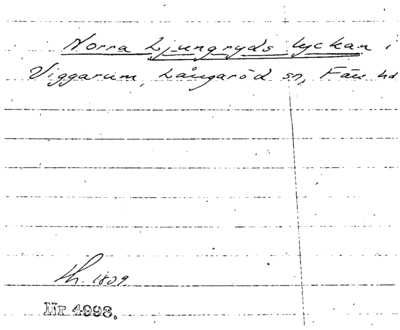 Norra Ljungryds lyckan i
Viggarum, Långaröd sn, Färs hd
Lh. 1809.
Nr 4998.